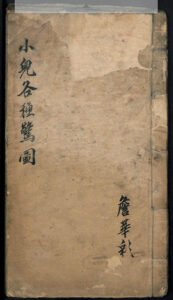 小兒各種驚圖
詹華彰